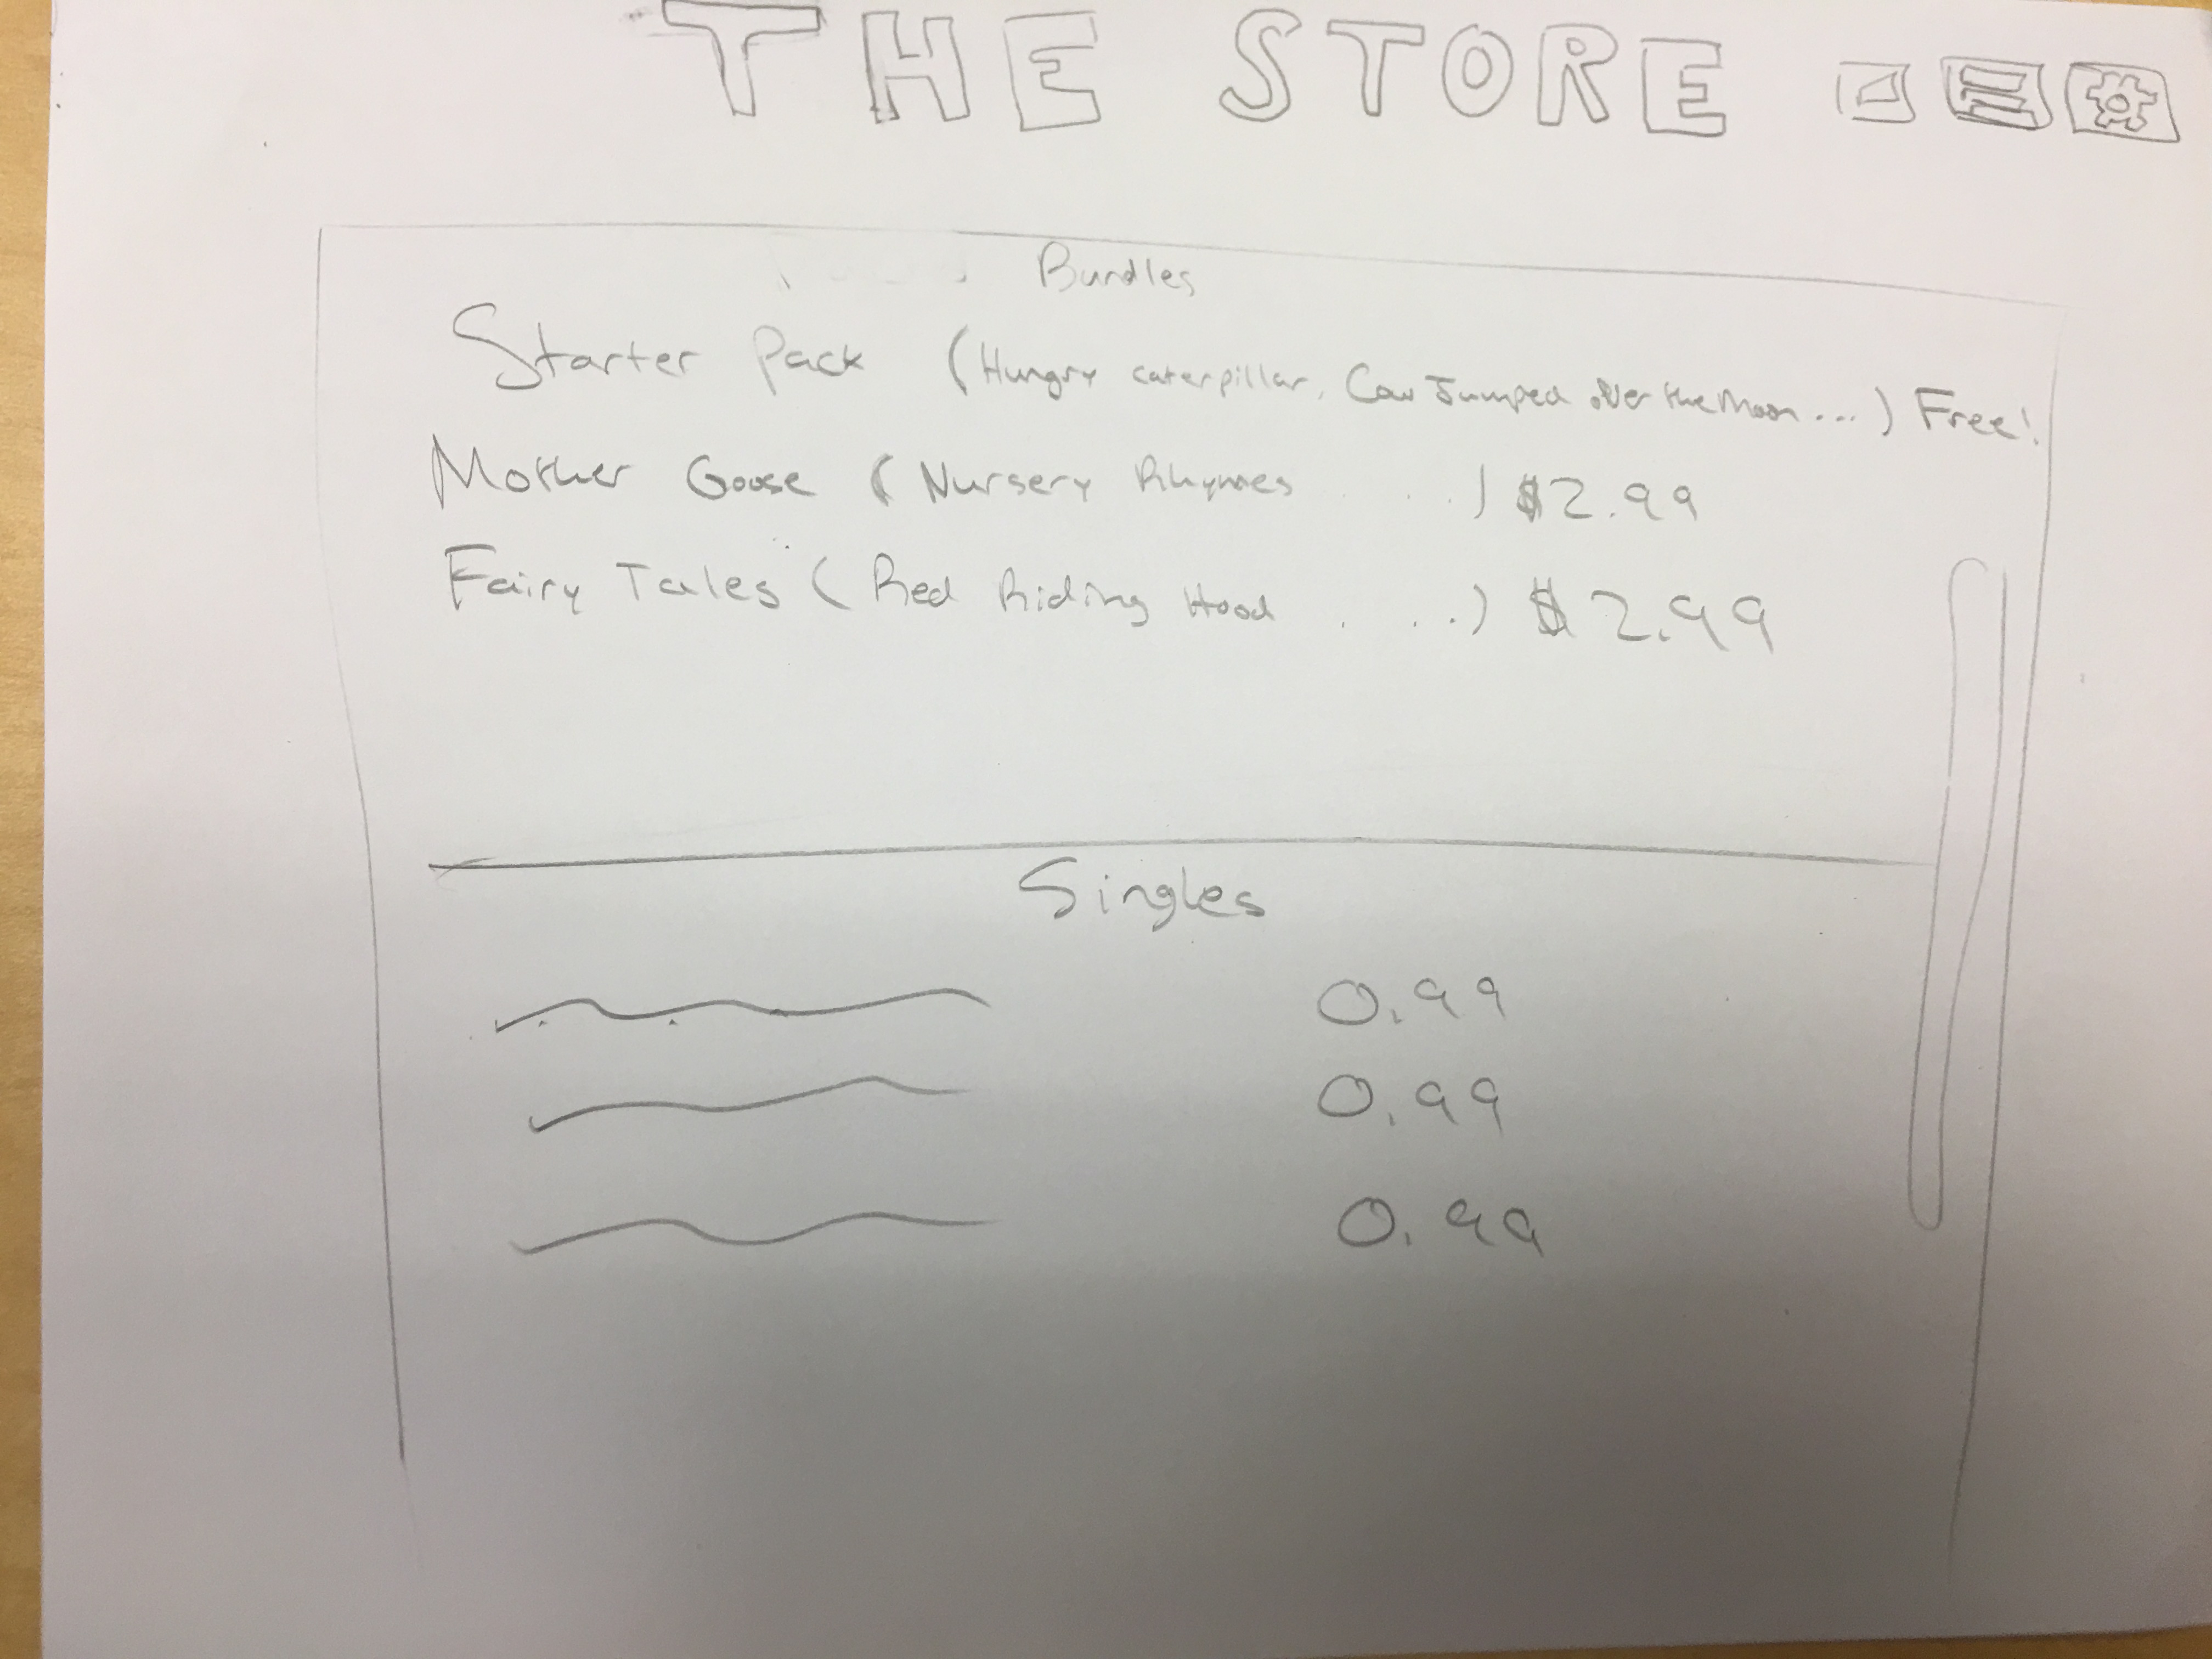 THE STORE
Bundles
Starter Pack (Hungry caterpillar, Cow Jumped over the Moon...) Free!
Mother Goose (Nursery Rhymes . . .) $2.99
Fairy Tales (Red Riding Hood . . .) $2.99
Singles
0.99
0.99
0.99